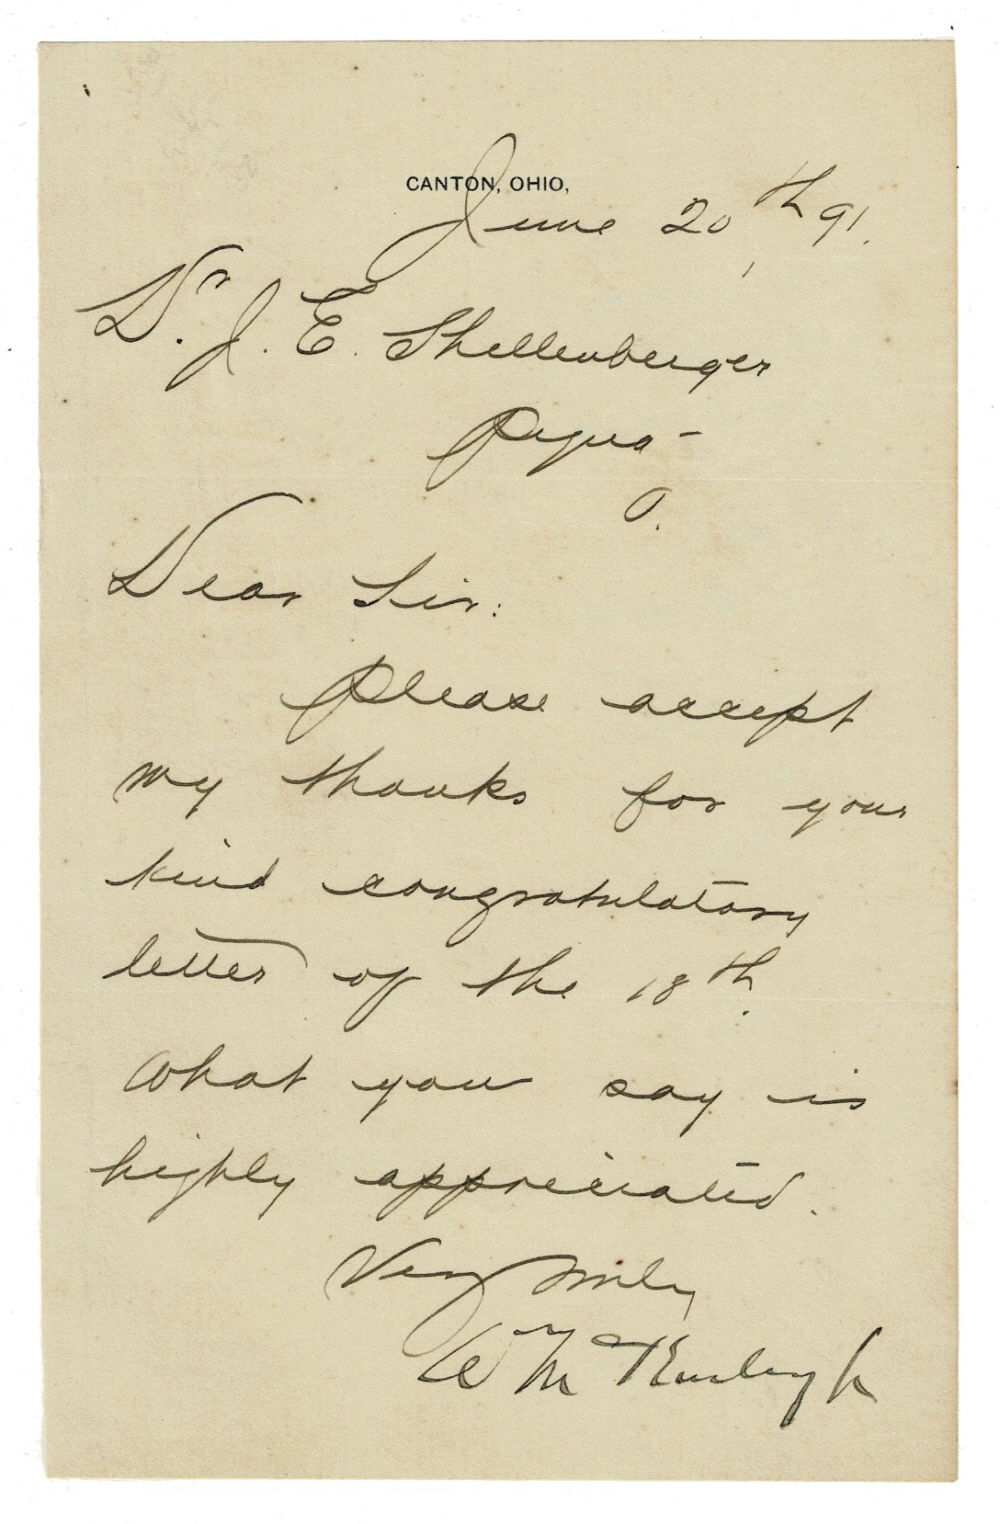 CANTON, OHIO,
June 20, th 91.
Dr. J. E. Shellenberger
Piqua -
O.
Dear Sir:
Please accept
my thanks for your
kind congratulatory
letter of the 18th.
What you say is
highly appreciated.
Very truly
Wm McKinley Jr